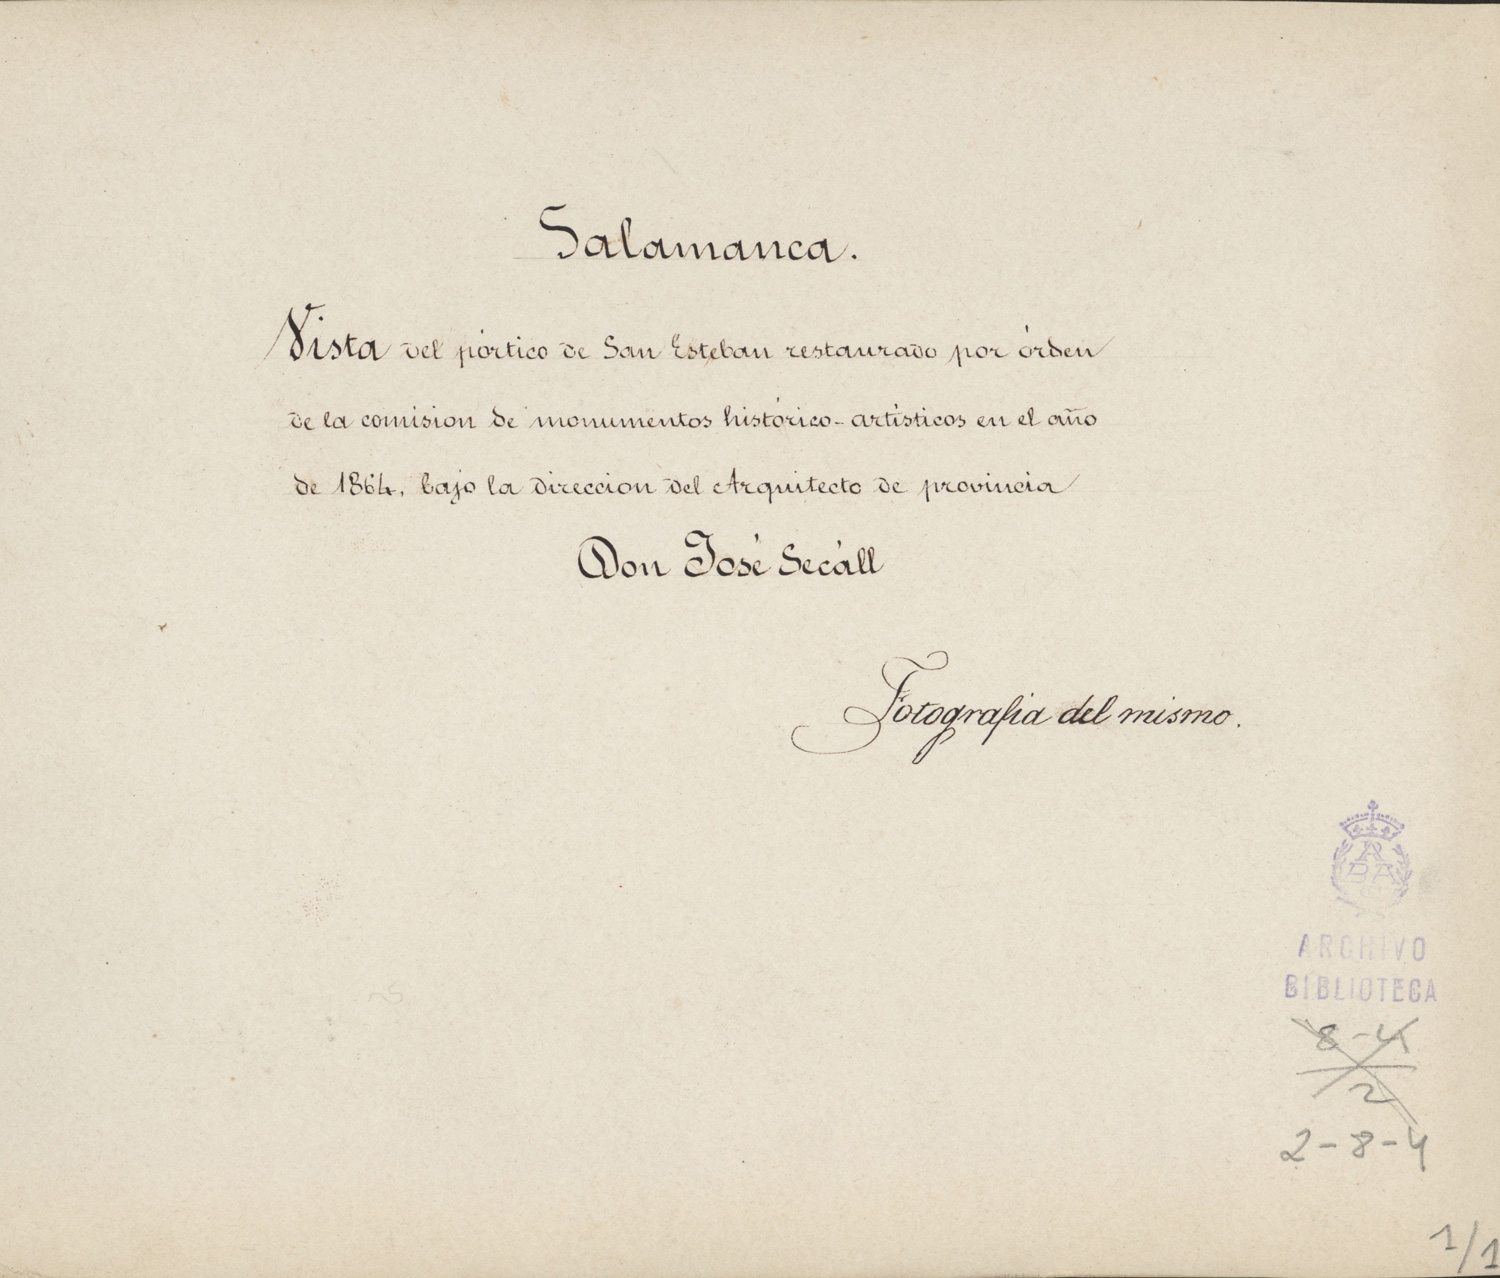 Salamanca.
Vista del pórtico de San Esteban restaurado por órden
de la comision de monumentos histórico-artísticos en el año
de 1864, bajo la direccion del Arquitecto de provincia
Don José Secáll
Fotografia del mismo.
R
BA
ARCHIVO
BIBLIOTECA
8-4
2
2-8-4
1/1